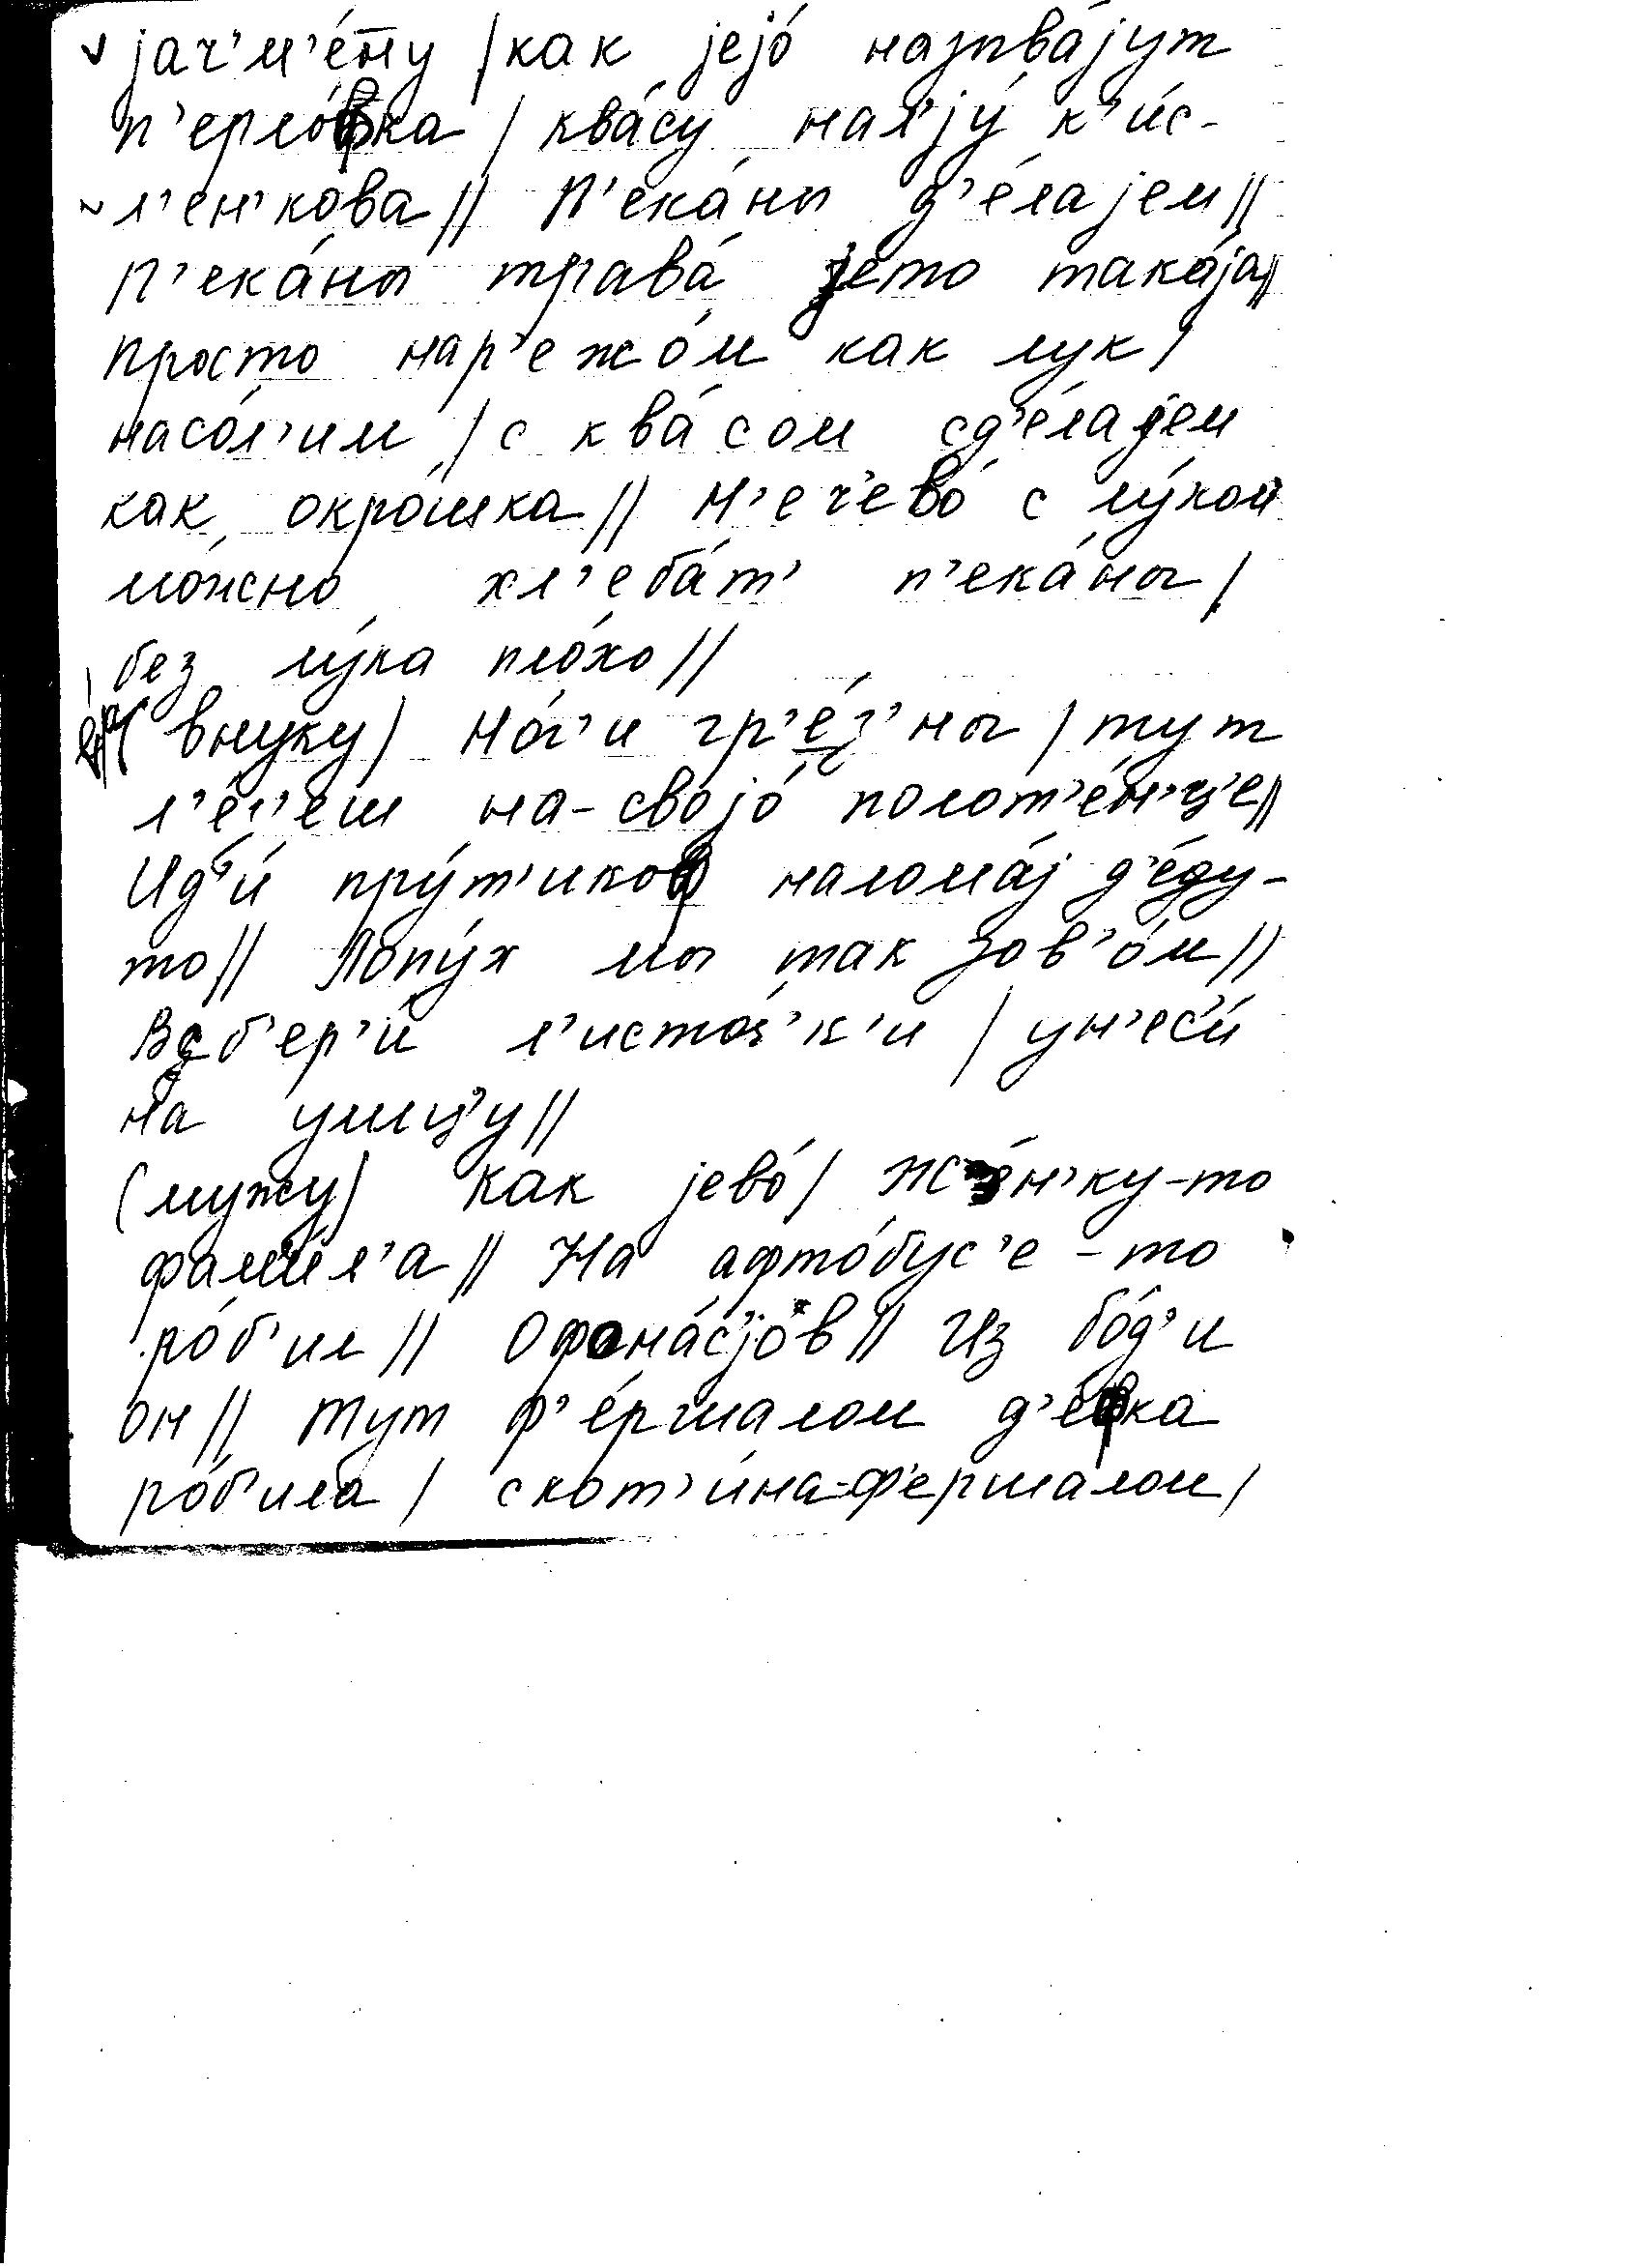 јач'м'е́ну / как јејо́ называ́јут
п'ерло́вка / ква́су нал'ју́ к'и́с-
л'ен'кова // П'ека́ны д'е́лајем //
П'ека́ны трава́ јето така́ја //
просто нар'ежо́м как лук /
насо́л'им / с ква́сом сд'е́лајем
как окро́шка // Н'ечево́ с лу́ком
мо́жно хл'еба́т' п'ека́ны /
без лу́ка пло́хо //
(внуку) Но́г'и гр'е́з'ны / тут
л'е́г'еш на-својо́ полот'е́н'ц'е //
Ид'и́ пру́т'иков налома́ј д'е́ду-
то // Лопу́х мы так зов'о́м //
б'ер'и́ л'исто́ч'к'и / ун'ес'и́
на улиц'у //
(мужу) Как јево́ / Же́н'ку-то
фами́л'а // На афто́бус'е - то
ро́б'ил // Офона́с'јов // Из бо́д'и
он // Тут ф'е́ршалом д'е́вка
ро́б'ила / скот'и́на-ф'ершалом /